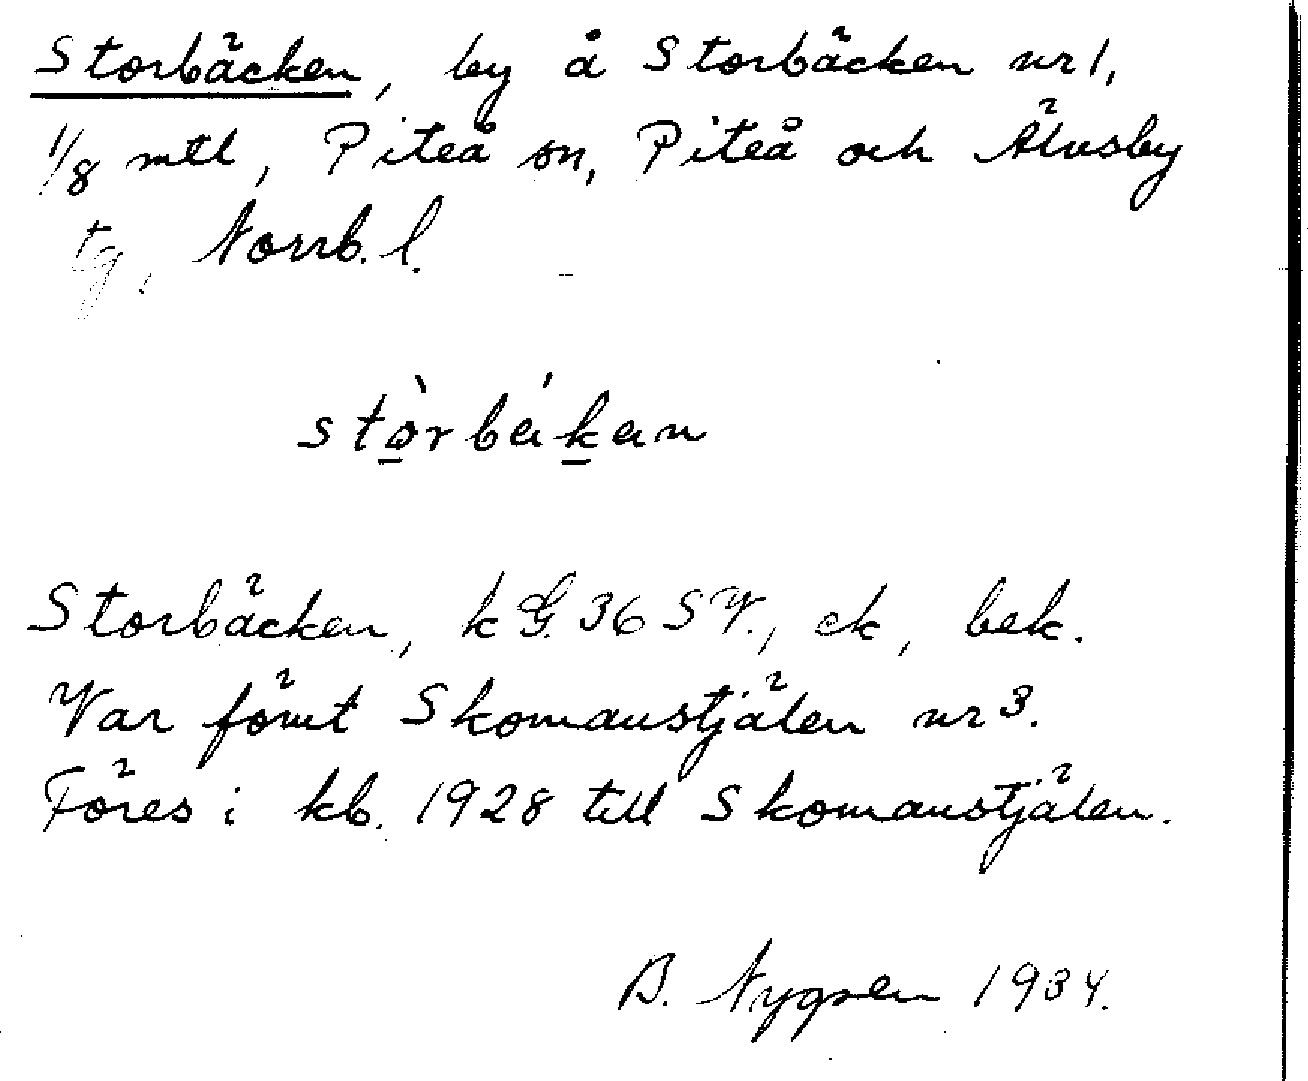 Storbäcken, by å Storbäcken nr 1,
1/8 mtl, Piteå sn, Piteå och Älvsby
tg, Norrb. l.
stòrbákan
Storbäcken, k G. 36 SV., ek, bek.
Var förut Skomanstjälen nr 3.
Föres i kb. 1928 till Skomanstjälen.
B. Nygren 1934.